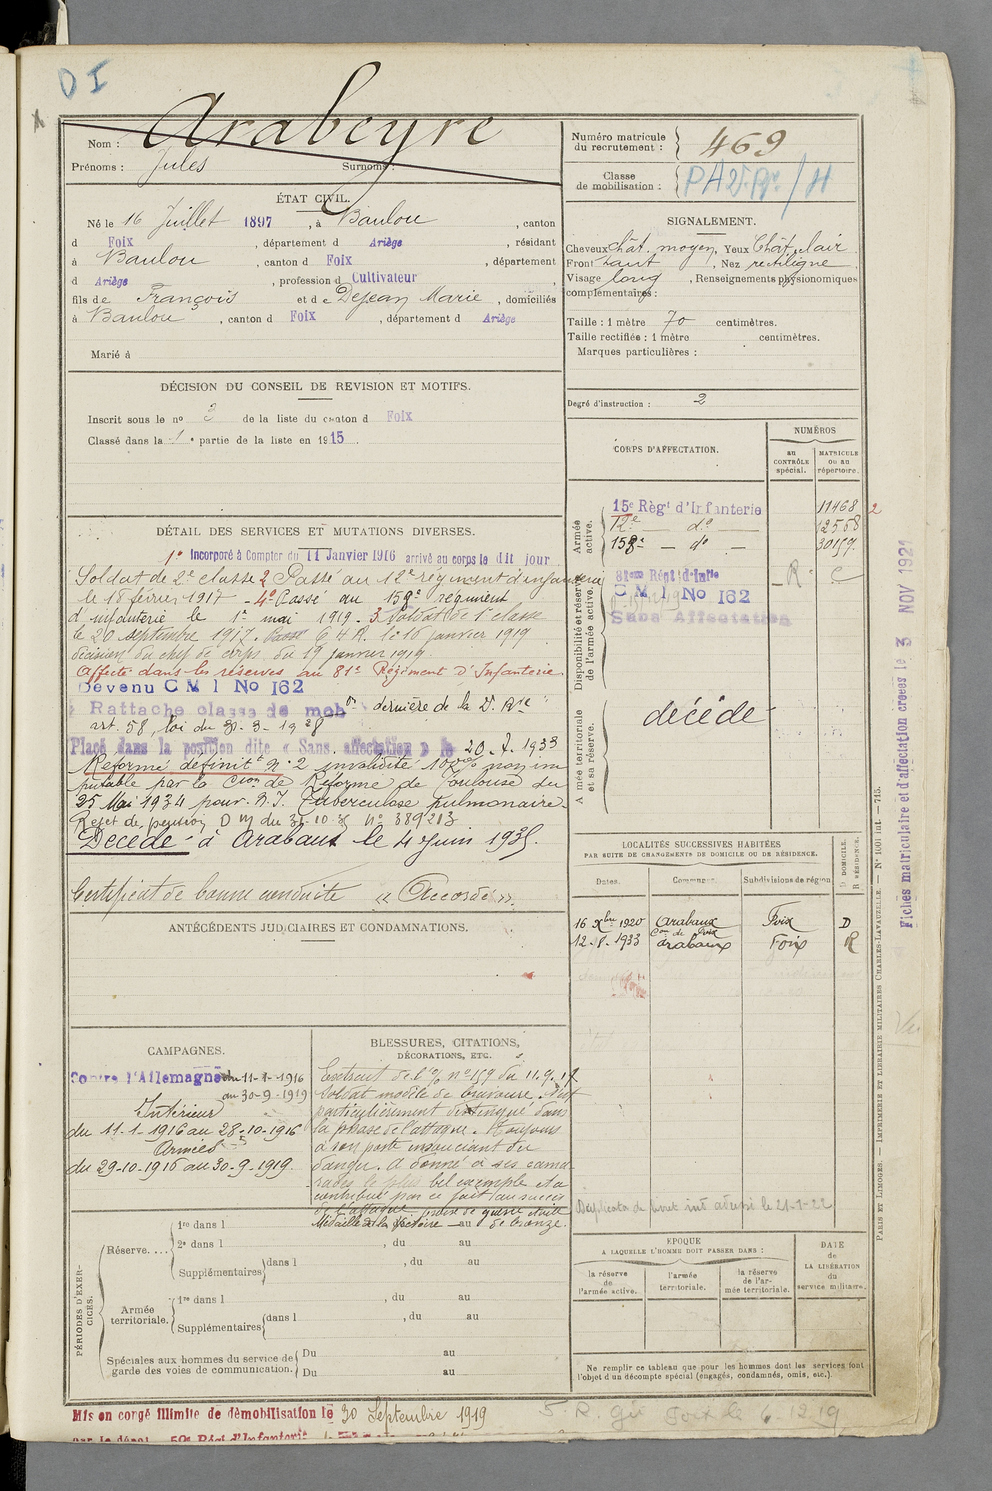 D I
Nom : Arabeyre
Prénoms : Jules Surnoms :
ÉTAT CIVIL.
Né le 16 Juillet 1897, à Baulou, canton
d Foix, département d Ariège, résidant
à Baulou, canton d Foix, département
d Ariège, profession d Cultivateur
fils de François et de Dejean Marie, domiciliés
à Baulou, canton d Foix, département d Ariège
Marié à
DÉCISION DU CONSEIL DE REVISION ET MOTIFS.
Inscrit sous le no 3 de la liste du canton d Foix
Classé dans la 1e partie de la liste en 1915.
DÉTAIL DES SERVICES ET MUTATIONS DIVERSES.
1° Incorporé à Compter du 11 Janvier 1916 arrivé au corps le dit jour
Soldat de 2e classe 2 Passé au 12e régiment d'infanterie
le 18 février 1917 - 4° Passé au 159e régiment
d'infanterie le 1er mai 1919. 3 Soldat de 1e classe
le 20 septembre 1917. Passé 6 4 R. le 16 janvier 1919
décision du chef de corps du 19 janvier 1919.
Affecté dans les réserves au 81e Régiment d'Infanterie
Devenu C M I No 162
Rattaché classe de mobon dernière de la 2e Rve
art. 58, loi du 31-3-1928
Placé dans la position dite « Sans affectation » le 20.7.1933
Réformé définitt No 2 invalidité 100% non im
putable par la Cion de Réforme de Toulouse du
25 Mai 1934 pour B.I. Tuberculose pulmonaire.
Rejet de pension D M du 31-10-35 No 389203
Décédé à Arabaux le 4 Juin 1935.
Certificat de bonne conduite « Accordé ».
ANTÉCÉDENTS JUDICIAIRES ET CONDAMNATIONS.
CAMPAGNES.
Contre l'Allemagne du 11-1-1916
au 30-9-1919
Intérieur
du 11.1.1916 au 28.10.1916
Armées
du 29-10-1916 au 30-9-1919.
BLESSURES, CITATIONS,
DÉCORATIONS, ETC.
Extrait de l'o/ no 159 du 11.9.17
Soldat modèle de bravoure. S'est
particulièrement distingué dans
la phase de l'attaque. Toujours
à son poste insouciant du
danger. A donné à ses cama
rades le plus bel exemple et a
contribué par ce fait au succès
de l'attaque croix de guerre étoile
Médaille de la Victoire de bronze.
PÉRIODES D'EXERCICES.
Réserve....
1re dans l , du au
2e dans l , du au
Supplémentaires dans l , du au
Armée territoriale.
1re dans l , du au
Supplémentaires dans l , du au
Spéciales aux hommes du service de
garde des voies de communication.
Du au
Du au
Mis en congé illimité de démobilisation le 30 Septembre 1919
par le dépôt 59e Régt d'Infanterie
Numéro matricule
du recrutement : 469
Classe
de mobilisation :
SIGNALEMENT.
Cheveux chât. moyen, Yeux Chât. clair
Front haut, Nez rectiligne
Visage long, Renseignements physionomiques
complémentaires :
Taille : 1 mètre 70 centimètres.
Taille rectifiée : 1 mètre centimètres.
Marques particulières :
Degré d'instruction : 2
CORPS D'AFFECTATION.
NUMÉROS
au
CONTRÔLE
spécial.
MATRICULE
ou au
répertoire.
Armée
active.
15e Régt d'Infanterie 11468
12e - do - 12558
159e - do - 30159.
Disponibilité et réserve
de l'armée active.
81eme Régt d'Infie
C M I No 162
Sans Affectation
Armée territoriale
et sa réserve.
décédé
LOCALITÉS SUCCESSIVES HABITÉES
PAR SUITE DE CHANGEMENTS DE DOMICILE OU DE RÉSIDENCE.
Dates. Communes. Subdivisions de région
D DOMICILE.
R RÉSIDENCE.
16 Xbre 1920 Arabaux Foix D
Con de Foix
12-8-1933 Arabaux Foix R
Duplicata de livret indel adressé le 21-1-22
ÉPOQUE
A LAQUELLE L'HOMME DOIT PASSER DANS :
la réserve
de
l'armée active.
l'armée
territoriale.
la réserve
de l'ar-
mée territoriale.
DATE
de
LA LIBÉRATION
du
service militaire.
Ne remplir ce tableau que pour les hommes dont les services font
l'objet d'un décompte spécial (engagés, condamnés, omis, etc.).
Fiches matriculaire et d'affectation créées le 3 NOV 1921
PARIS ET LIMOGES. — IMPRIMERIE ET LIBRAIRIE MILITAIRES CHARLES-LAVAUZELLE. — N° 1001 int. — 715.